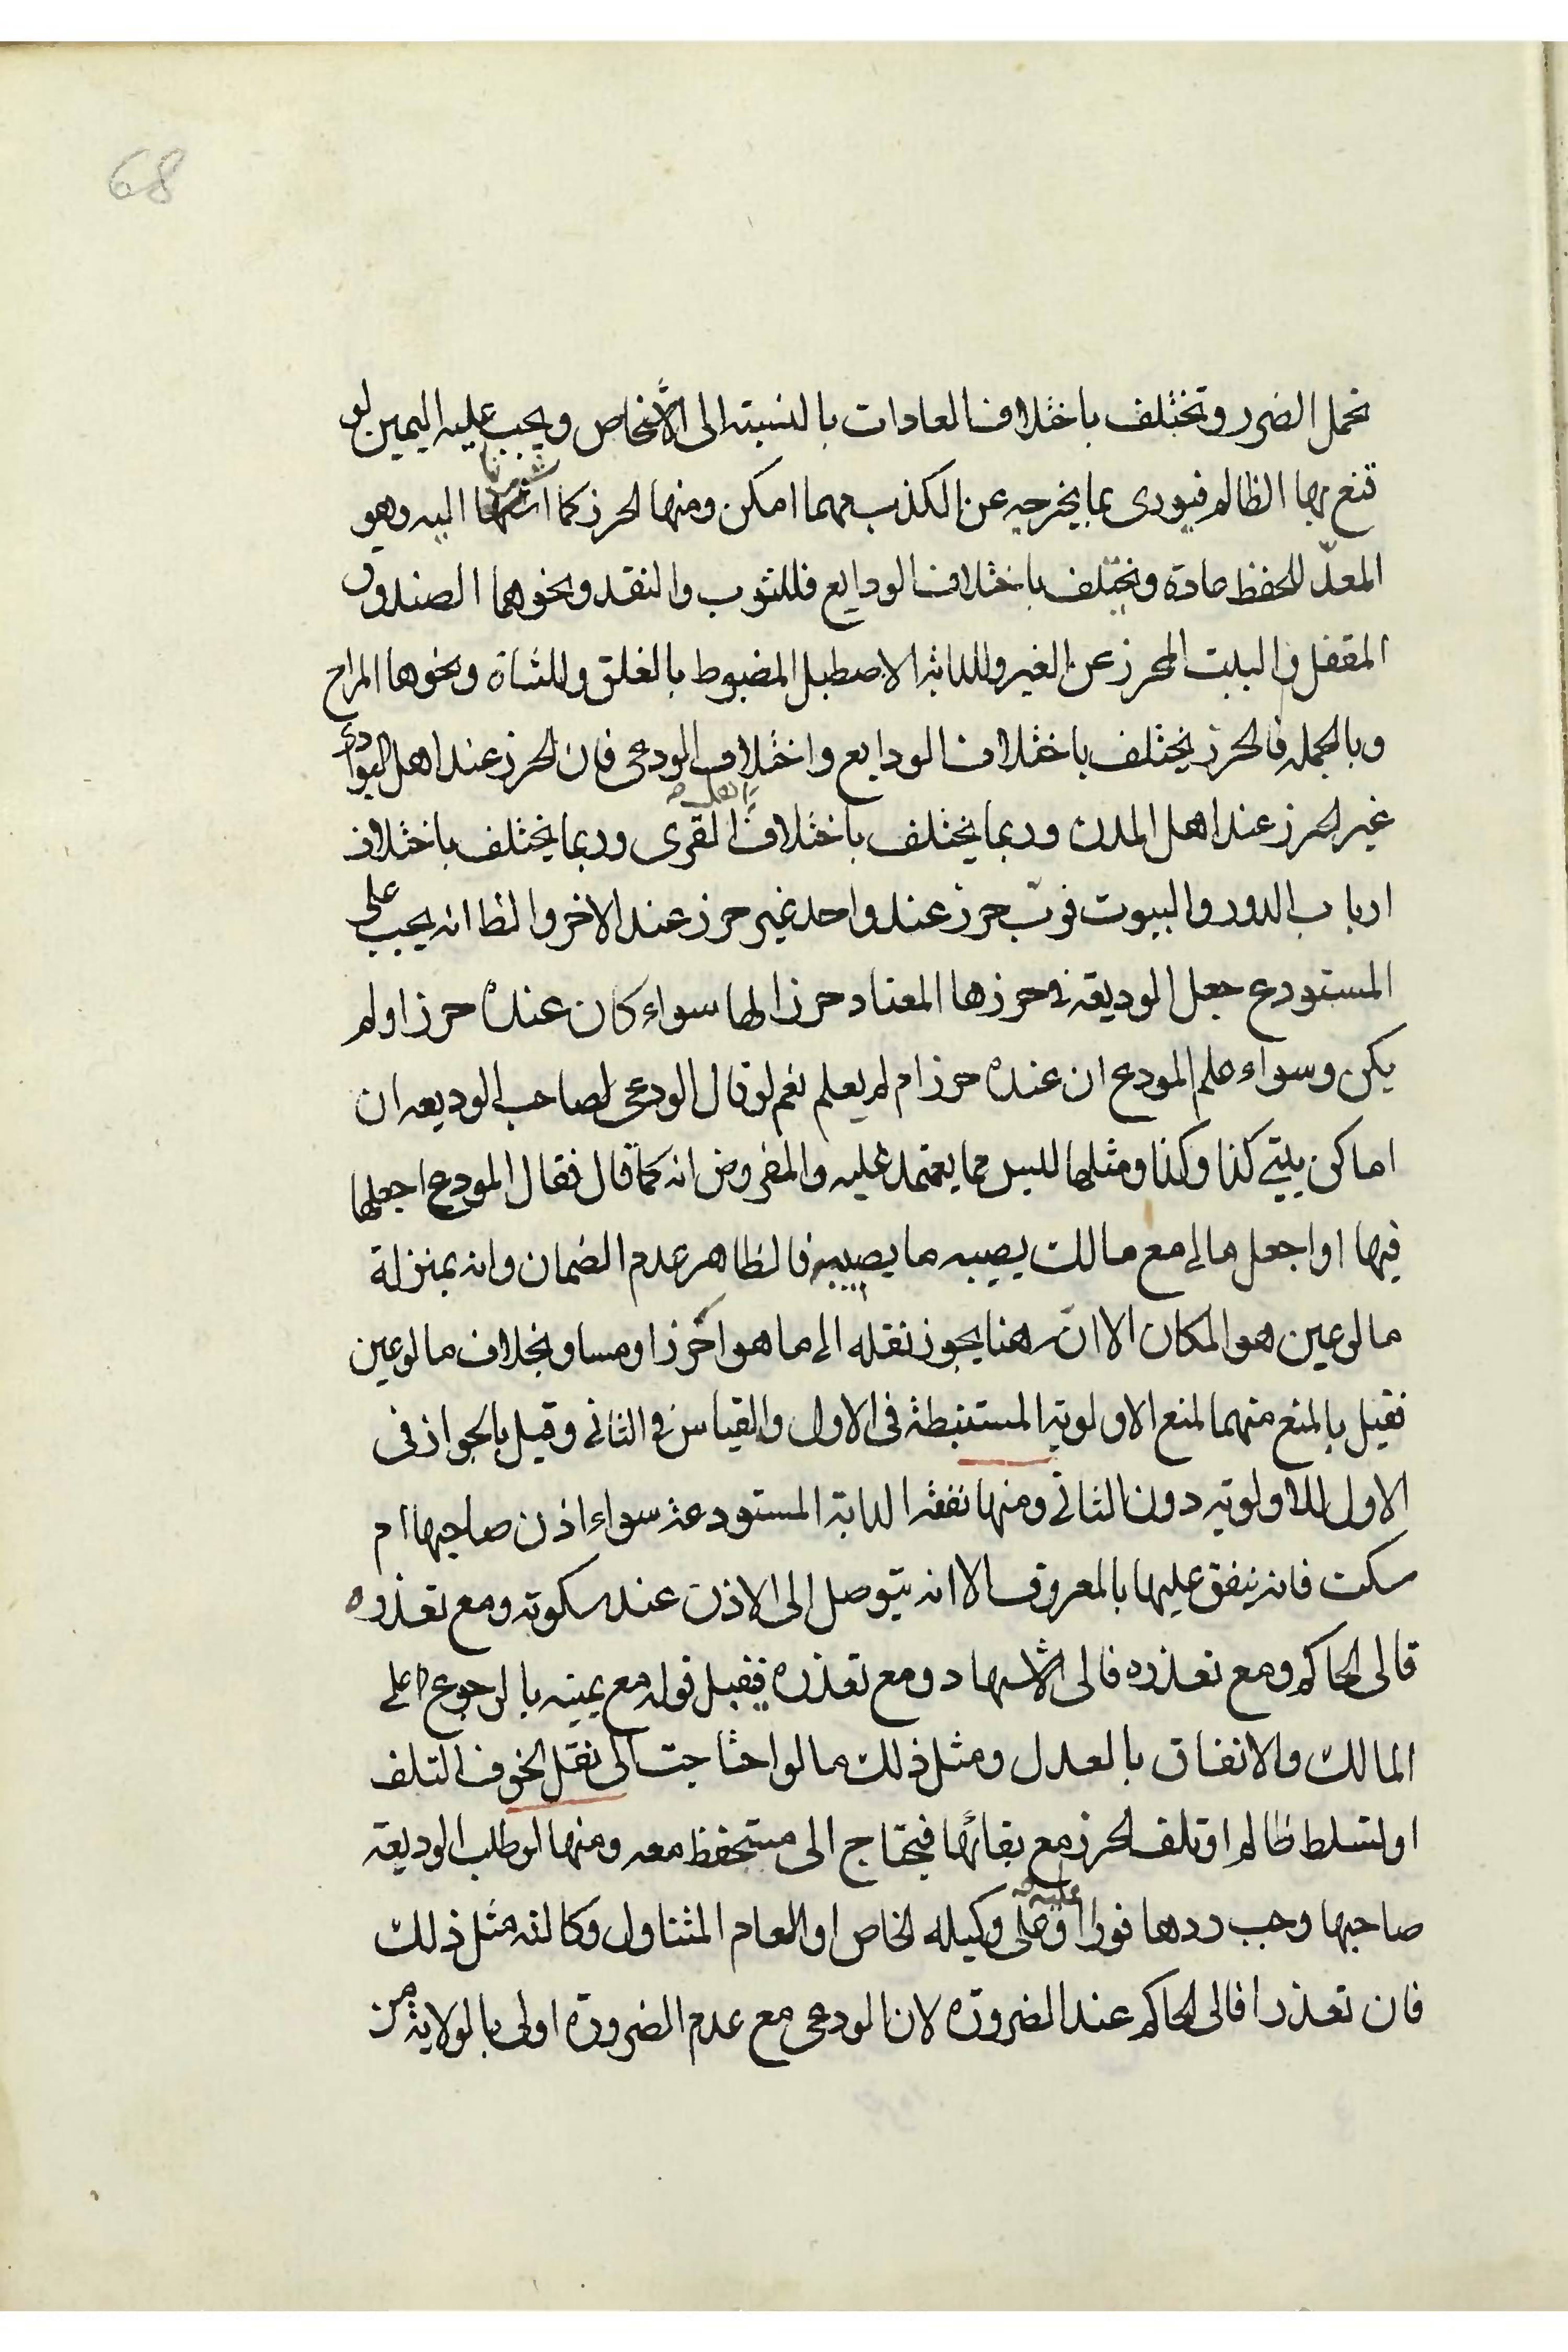 68
تحمل الضرر وتختلف باختلاف العادات بالنسبة الى الأشخاص ويجب عليه اليمين لو
قنع بها الظالم فيورى بما يخرجه عن الكذب مهما امكن ومنها الحرز كما اشرنا اليه وهو
المعدّ للحفظ عادة ويختلف باختلاف الودايع فللثوب والنقد ونحوهما الصندوق
المقفل والبيت المحرز عن الغير وللدابة الاصطبل المضبوط بالغلق وللشاة ونحوها المراح
وبالجملة فالحرز يختلف باختلاف الودايع واختلاف الودعى فان الحرز عند اهل البوادى
غير الحرز عند اهل المدن وربما يختلف باختلاف القرى وربما يختلف باختلاف
ارباب الدور والبيوت فربّ حرز عند واحد غير حرز عند الاخر والظا انه يجب على
المستودع جعل الوديعة فى حرزها المعتاد حرزا لها سواء كان عنده حرز اولم
يكن وسواء علم المودع ان عنده حرز ام لم يعلم نعم لو قال الودعى لصاحب الوديعه ان
اماكن بيتى كذا وكذا ومثلها لليس مما يعتمد عليه والمفروض انه كما قال فقال المودع اجعلها
فيها او اجعل مالى مع مالك يصيبه ما يصيبه فالظاهر عدم الضمان وانه بمنزلة
ما لو عين هو المكان الا انّ هنا يجوز نقله الى ما هو احرز او مساو بخلاف ما لو عين
فقيل بالمنع منهما لمنع الاولوية المستنبطة فى الاول والقياس فى الثانى وقيل بالجواز فى
الاول للاولوية دون الثانى ومنها نفقة الدابة المستودعة سواء اذن صاحبها ام
سكت فانه ينفق عليها بالمعروف الا انه يتوصل الى الاذن عند سكوته ومع تعذره
قالى الحاكم ومع تعذره فالى الاشهاد ومع تعذره فيقبل قوله مع يمينه بالرجوع على
المالك والانفاق بالعدل ومثل ذلك ما لو احتاجت الى نقل لخوف التلف
او لتسلط ظالم او تلف الحرز مع بقائها فيحتاج الى مستحفظ معه ومنها لو طلب الوديعة
صاحبها وجب ردها فورا عليه او على وكيله الخاص او العام المتناول وكالته مثل ذلك
فان تعذرا فالى الحاكم عند الضرورة لان الودعى مع عدم الضرورة اولى بالولاية من